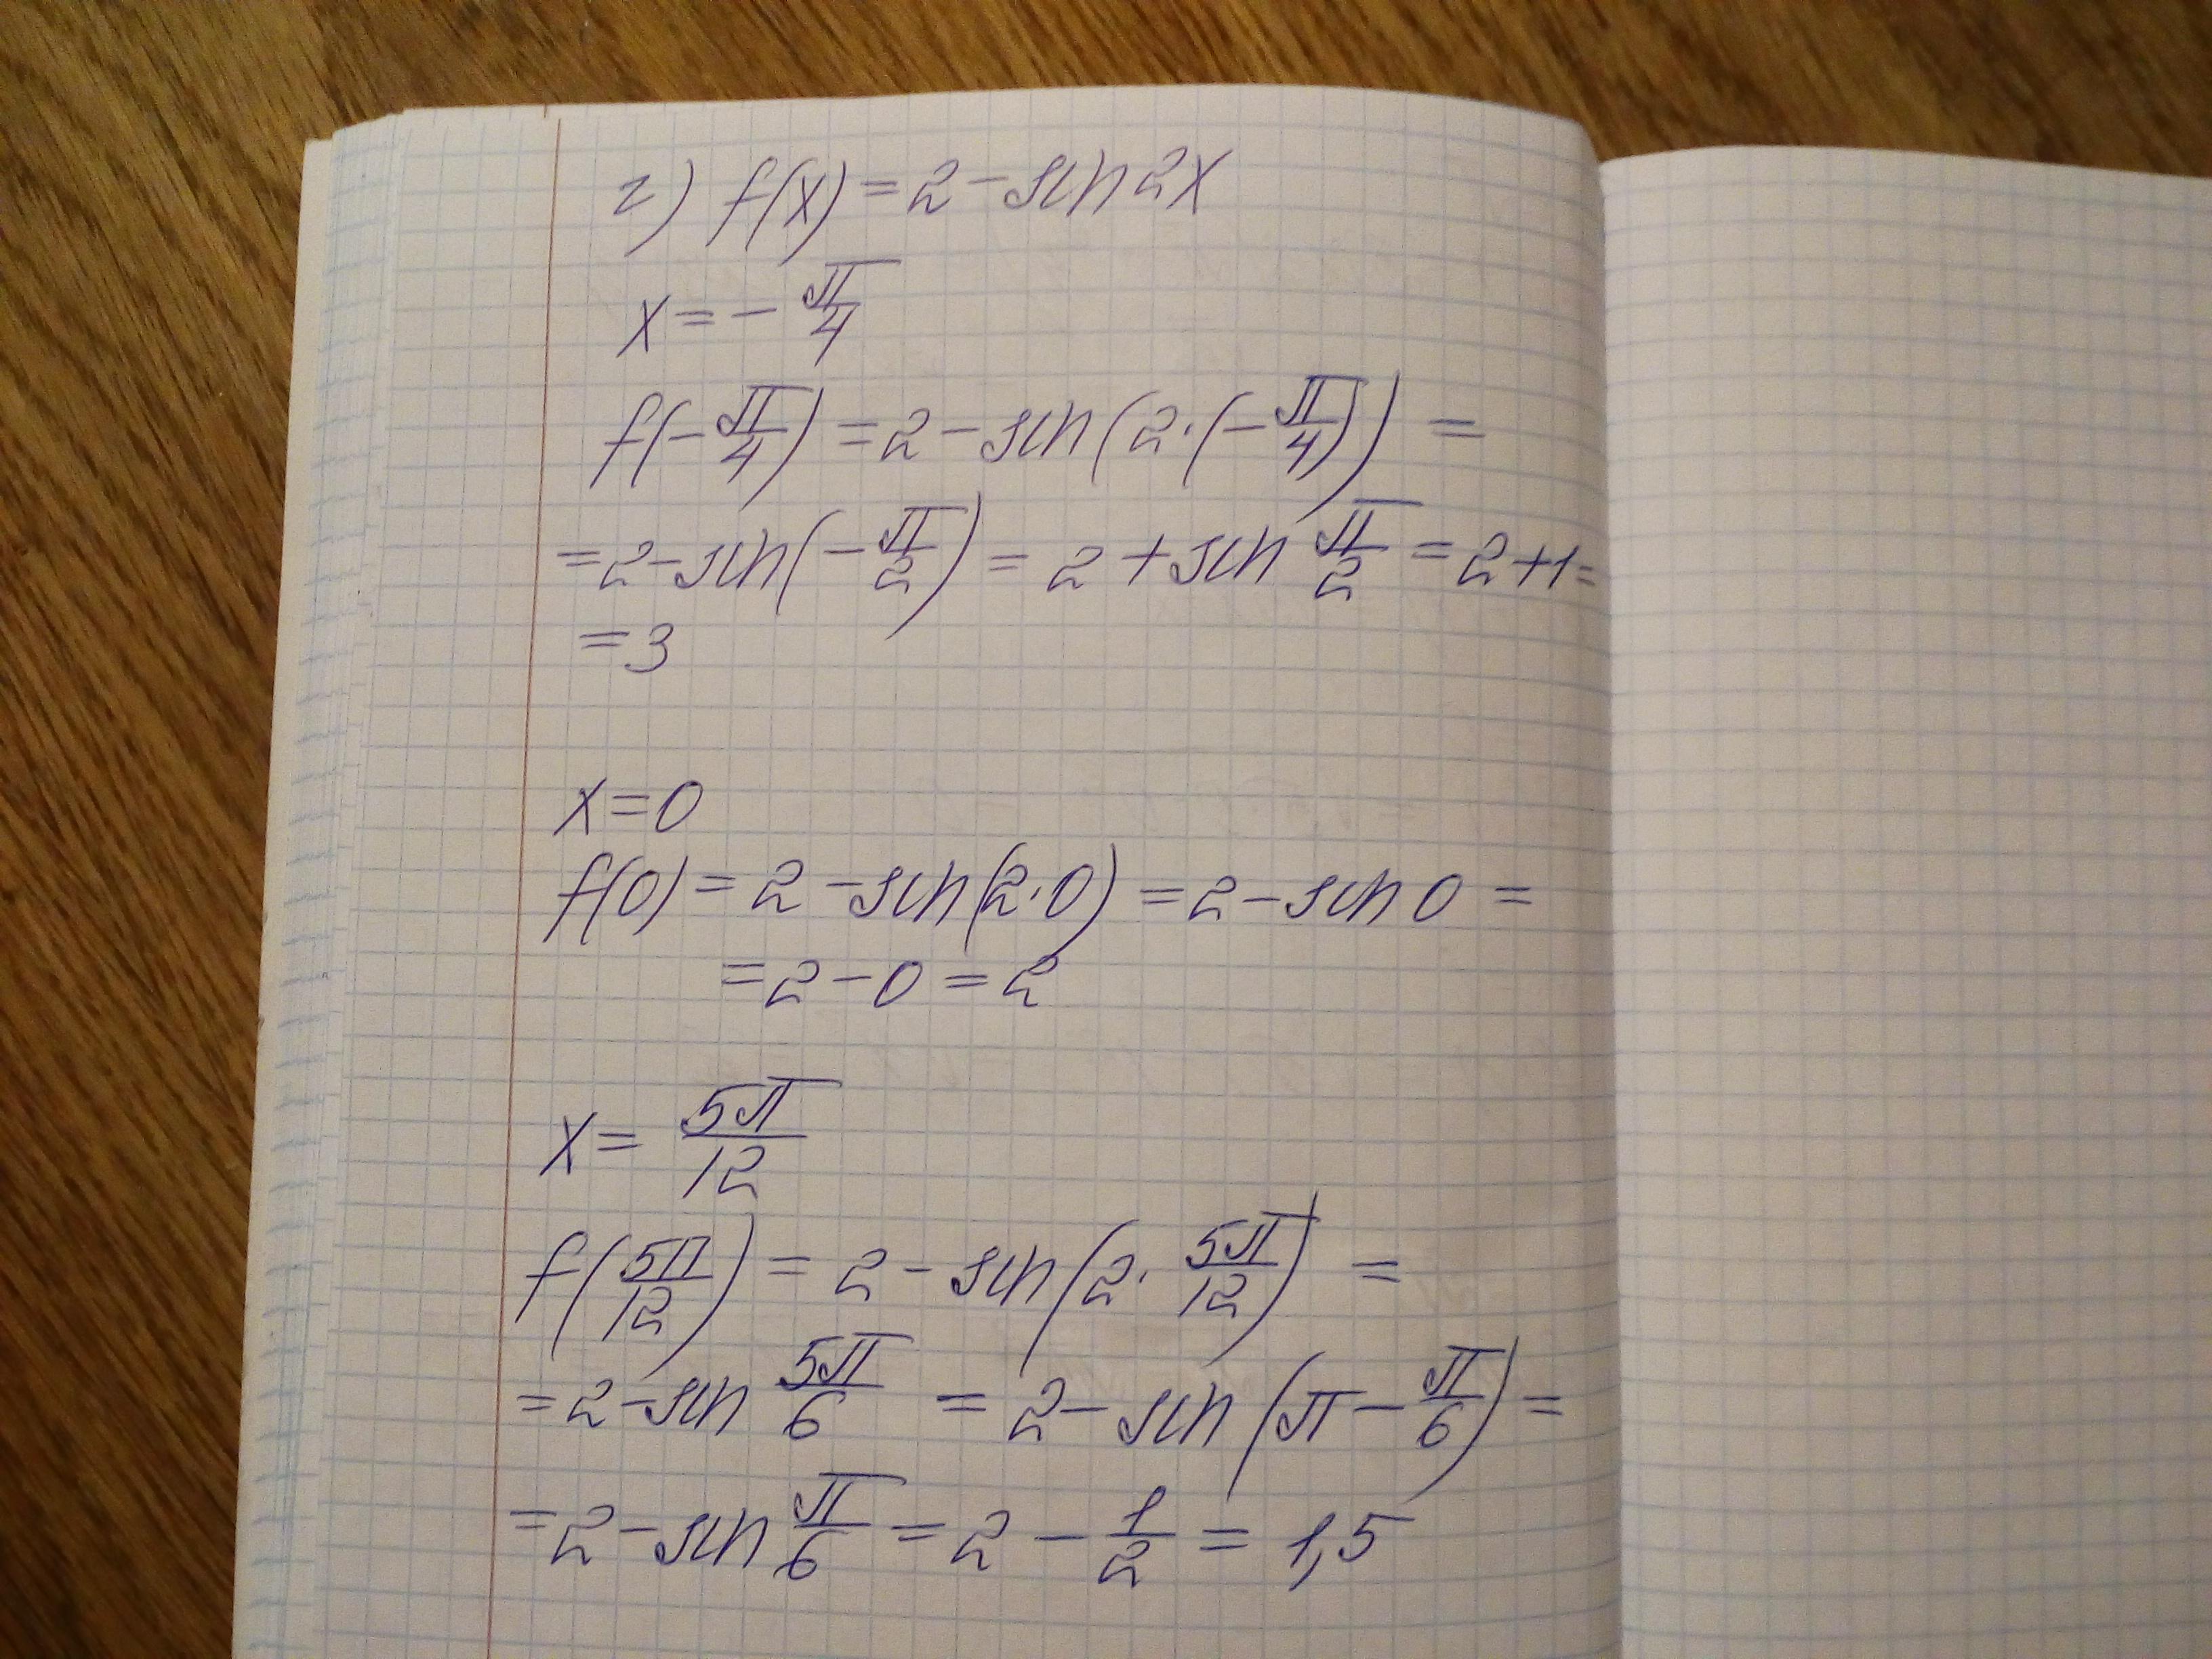 г) f(x) = 2 - sin 2x
x = - π/4
f(- π/4) = 2 - sin(2·(- π/4)) =
= 2 - sin(- π/2) = 2 + sin π/2 = 2 + 1 =
= 3
x = 0
f(0) = 2 - sin(2·0) = 2 - sin 0 =
= 2 - 0 = 2
x = 5π/12
f(5π/12) = 2 - sin(2· 5π/12) =
= 2 - sin 5π/6 = 2 - sin(π - π/6) =
= 2 - sin π/6 = 2 - 1/2 = 1,5